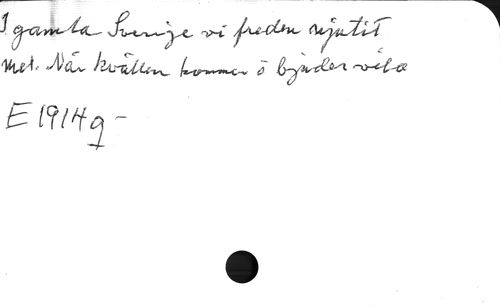 I gamla Sverige vi freden njutit
Mel. När kvällen kommer o bjuder vila
E 1914 g -